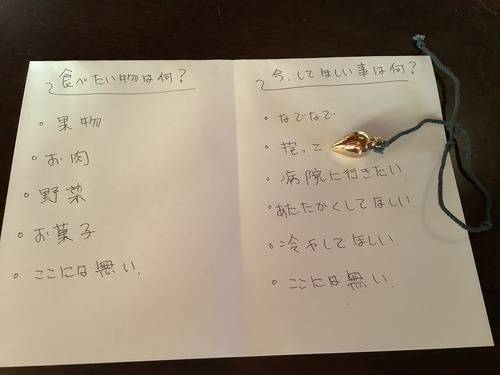 食べたい物は何?
・果物
・お肉
・野菜
・お菓子
・ここには無い.
今、してほしい事は何?
・なでなで
・抱って
・病院に行きたい
・あたたかくしてほしい
・冷やしてほしい
・ここには無い.